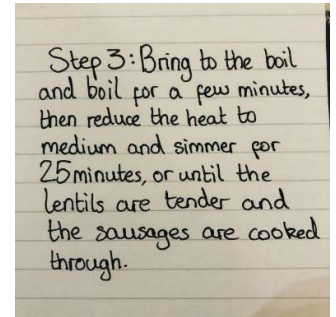 Step 3: Bring to the boil
and boil for a few minutes,
then reduce the heat to
medium and simmer for
25 minutes, or until the
lentils are tender and
the sausages are cooked
through.